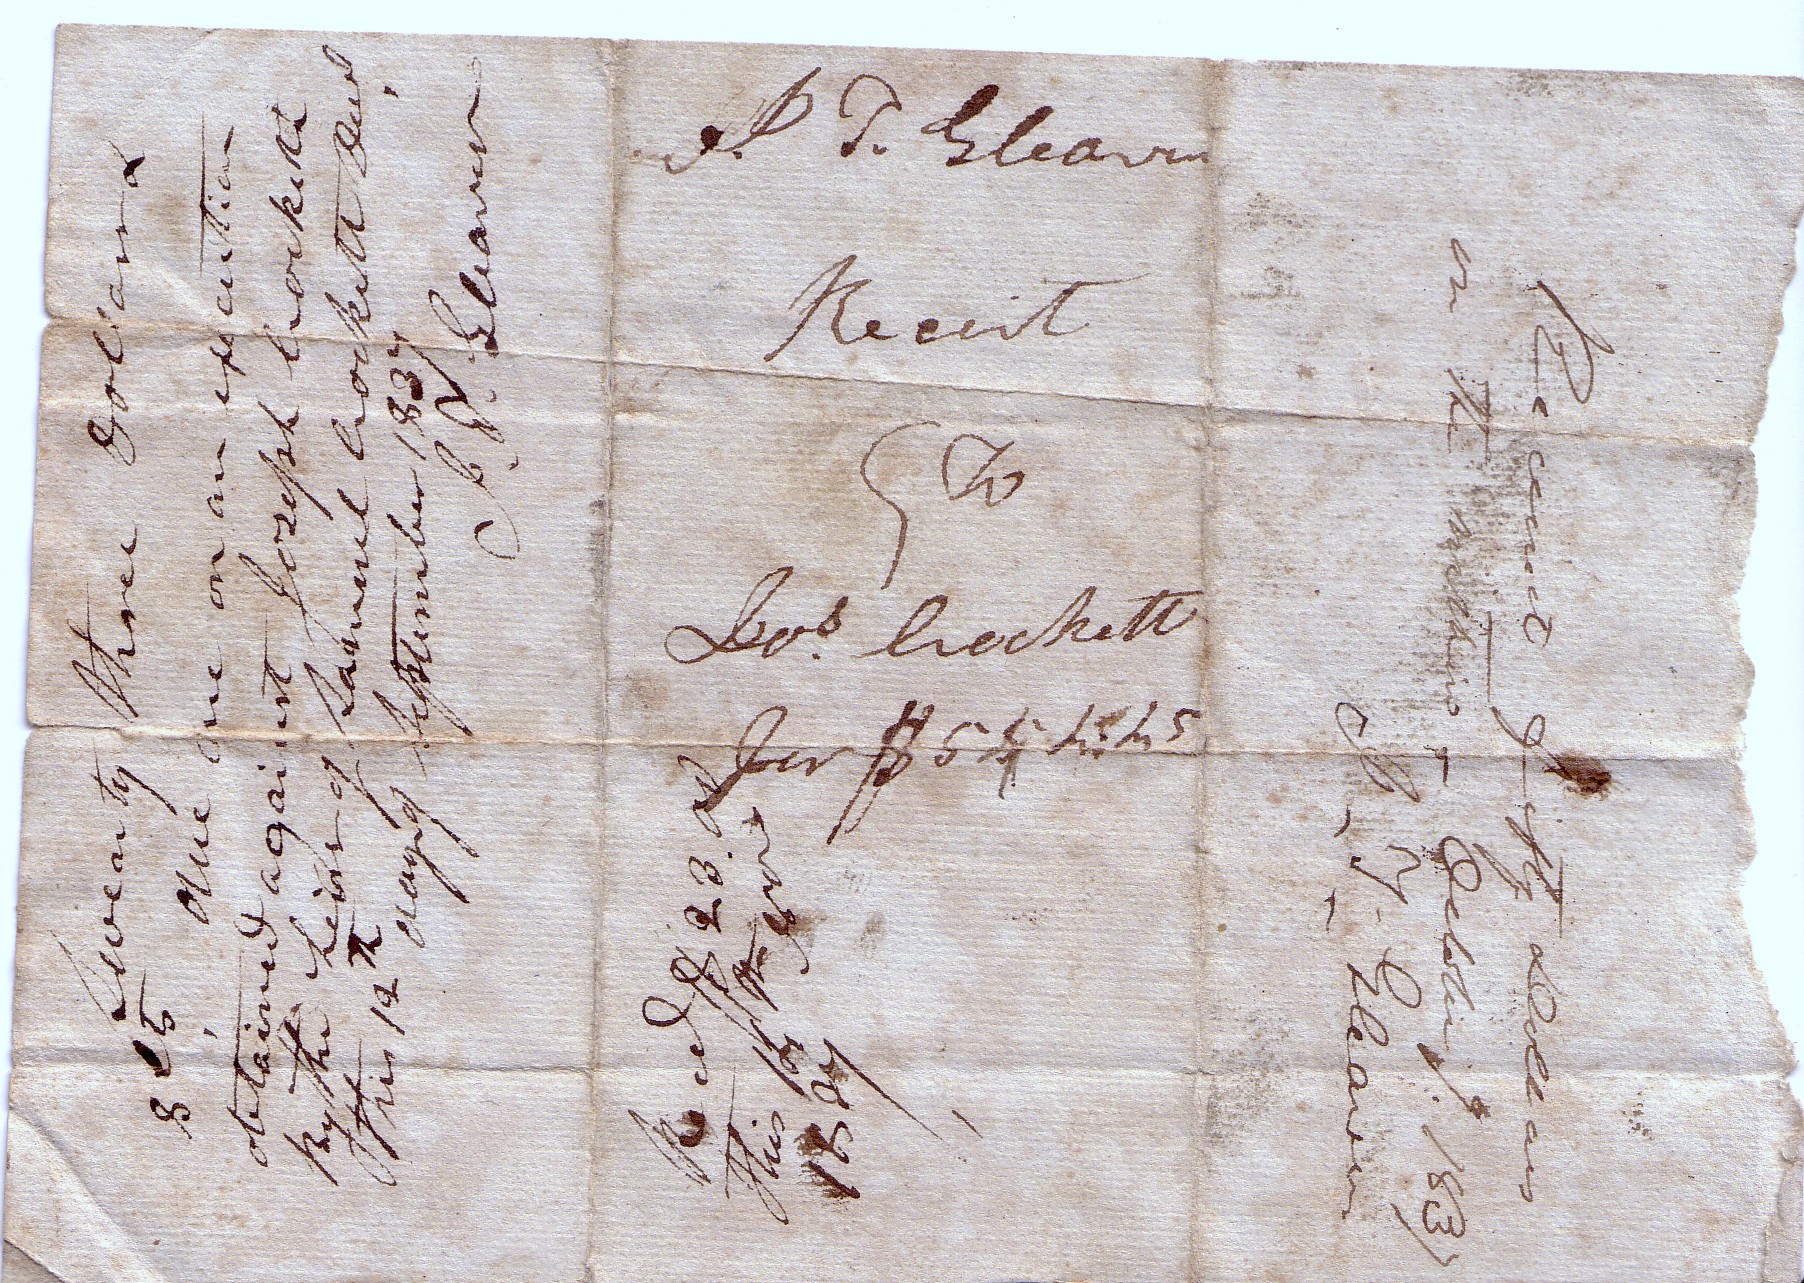 Twenty three Dollars &
85 due me on an execution
obtained against Joseph Crockett
by the heirs of Samuel Crockett Decd
this 12th day of September 1837
S. T. Gleaves
S. T. Gleaves
Receipt
To
Jos. Crockett
for $55
Recd $23.
this by
1837
Received fifty dollars
on the within 1837
S. T. Gleaves